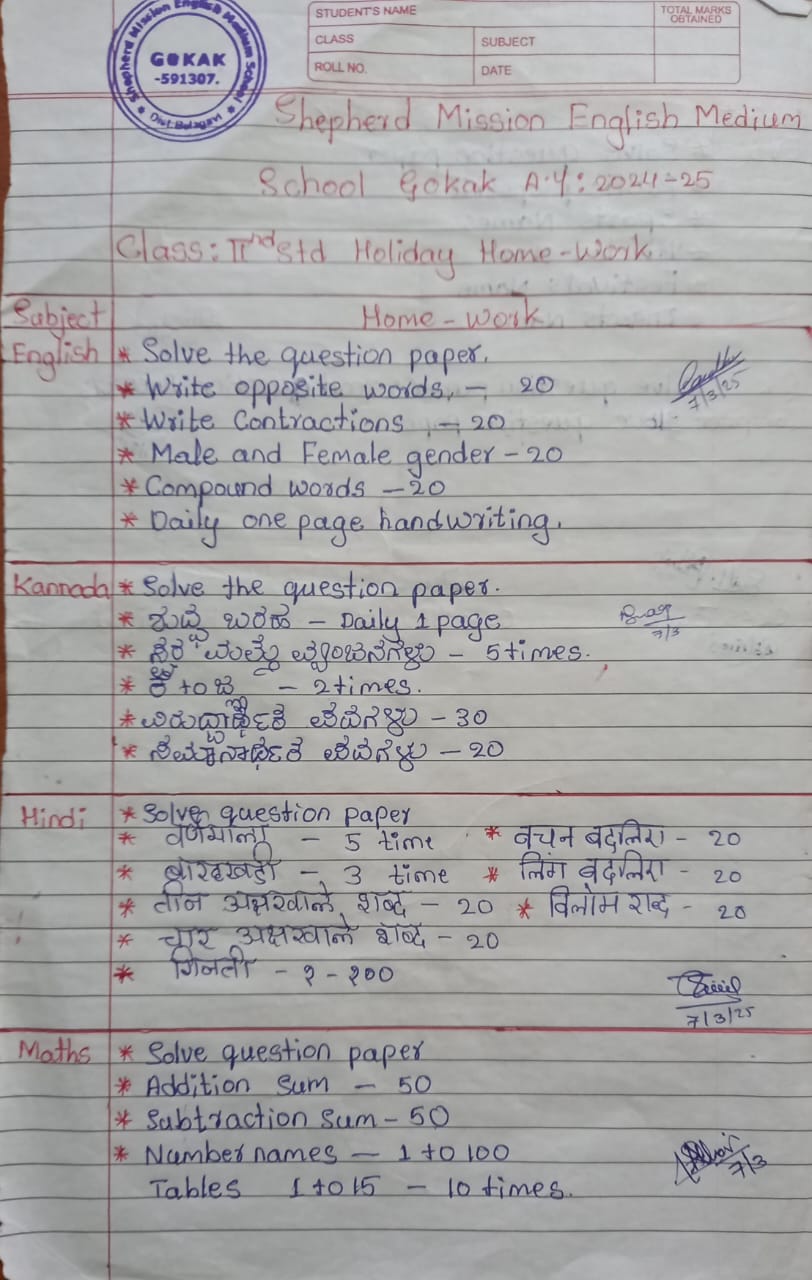 Shepherd Mission English Medium School
GOKAK
-591307.
Dist: Belagavi
STUDENT'S NAME
TOTAL MARKS OBTAINED
CLASS
SUBJECT
ROLL NO.
DATE
Shepherd Mission English Medium
School Gokak A.Y: 2024-25
Class: IInd Std Holiday Home-Work
Subject Home-Work
English * Solve the question paper.
* Write opposite words, - 20
* Write Contractions, - 20
* Male and Female gender - 20
* Compound words - 20
* Daily one page handwriting.
7/3/25
Kannada * Solve the question paper.
* ಶುದ್ಧ ಬರಹ - Daily 1 page
* ಸ್ವರ ಮತ್ತು ವ್ಯಂಜನಗಳು - 5 times.
* - 2 times.
* ವಿರುದ್ಧಾರ್ಥಕ ಪದಗಳು - 30
* ಸಮಾನಾರ್ಥಕ ಪದಗಳು - 20
7/3
Hindi * Solve question paper
* वर्णमाला - 5 time * वचन बदलिए - 20
* बारहखड़ी - 3 time * लिंग बदलिए - 20
* तीन अक्षरवाले शब्द - 20 * विलोम शब्द - 20
* चार अक्षरवाले शब्द - 20
* गिनती - १ - १००
7/3/25
Maths * Solve question paper
* Addition Sum - 50
* Subtraction Sum - 50
* Number names - 1 to 100
Tables 1 to 15 - 10 times.
7/3